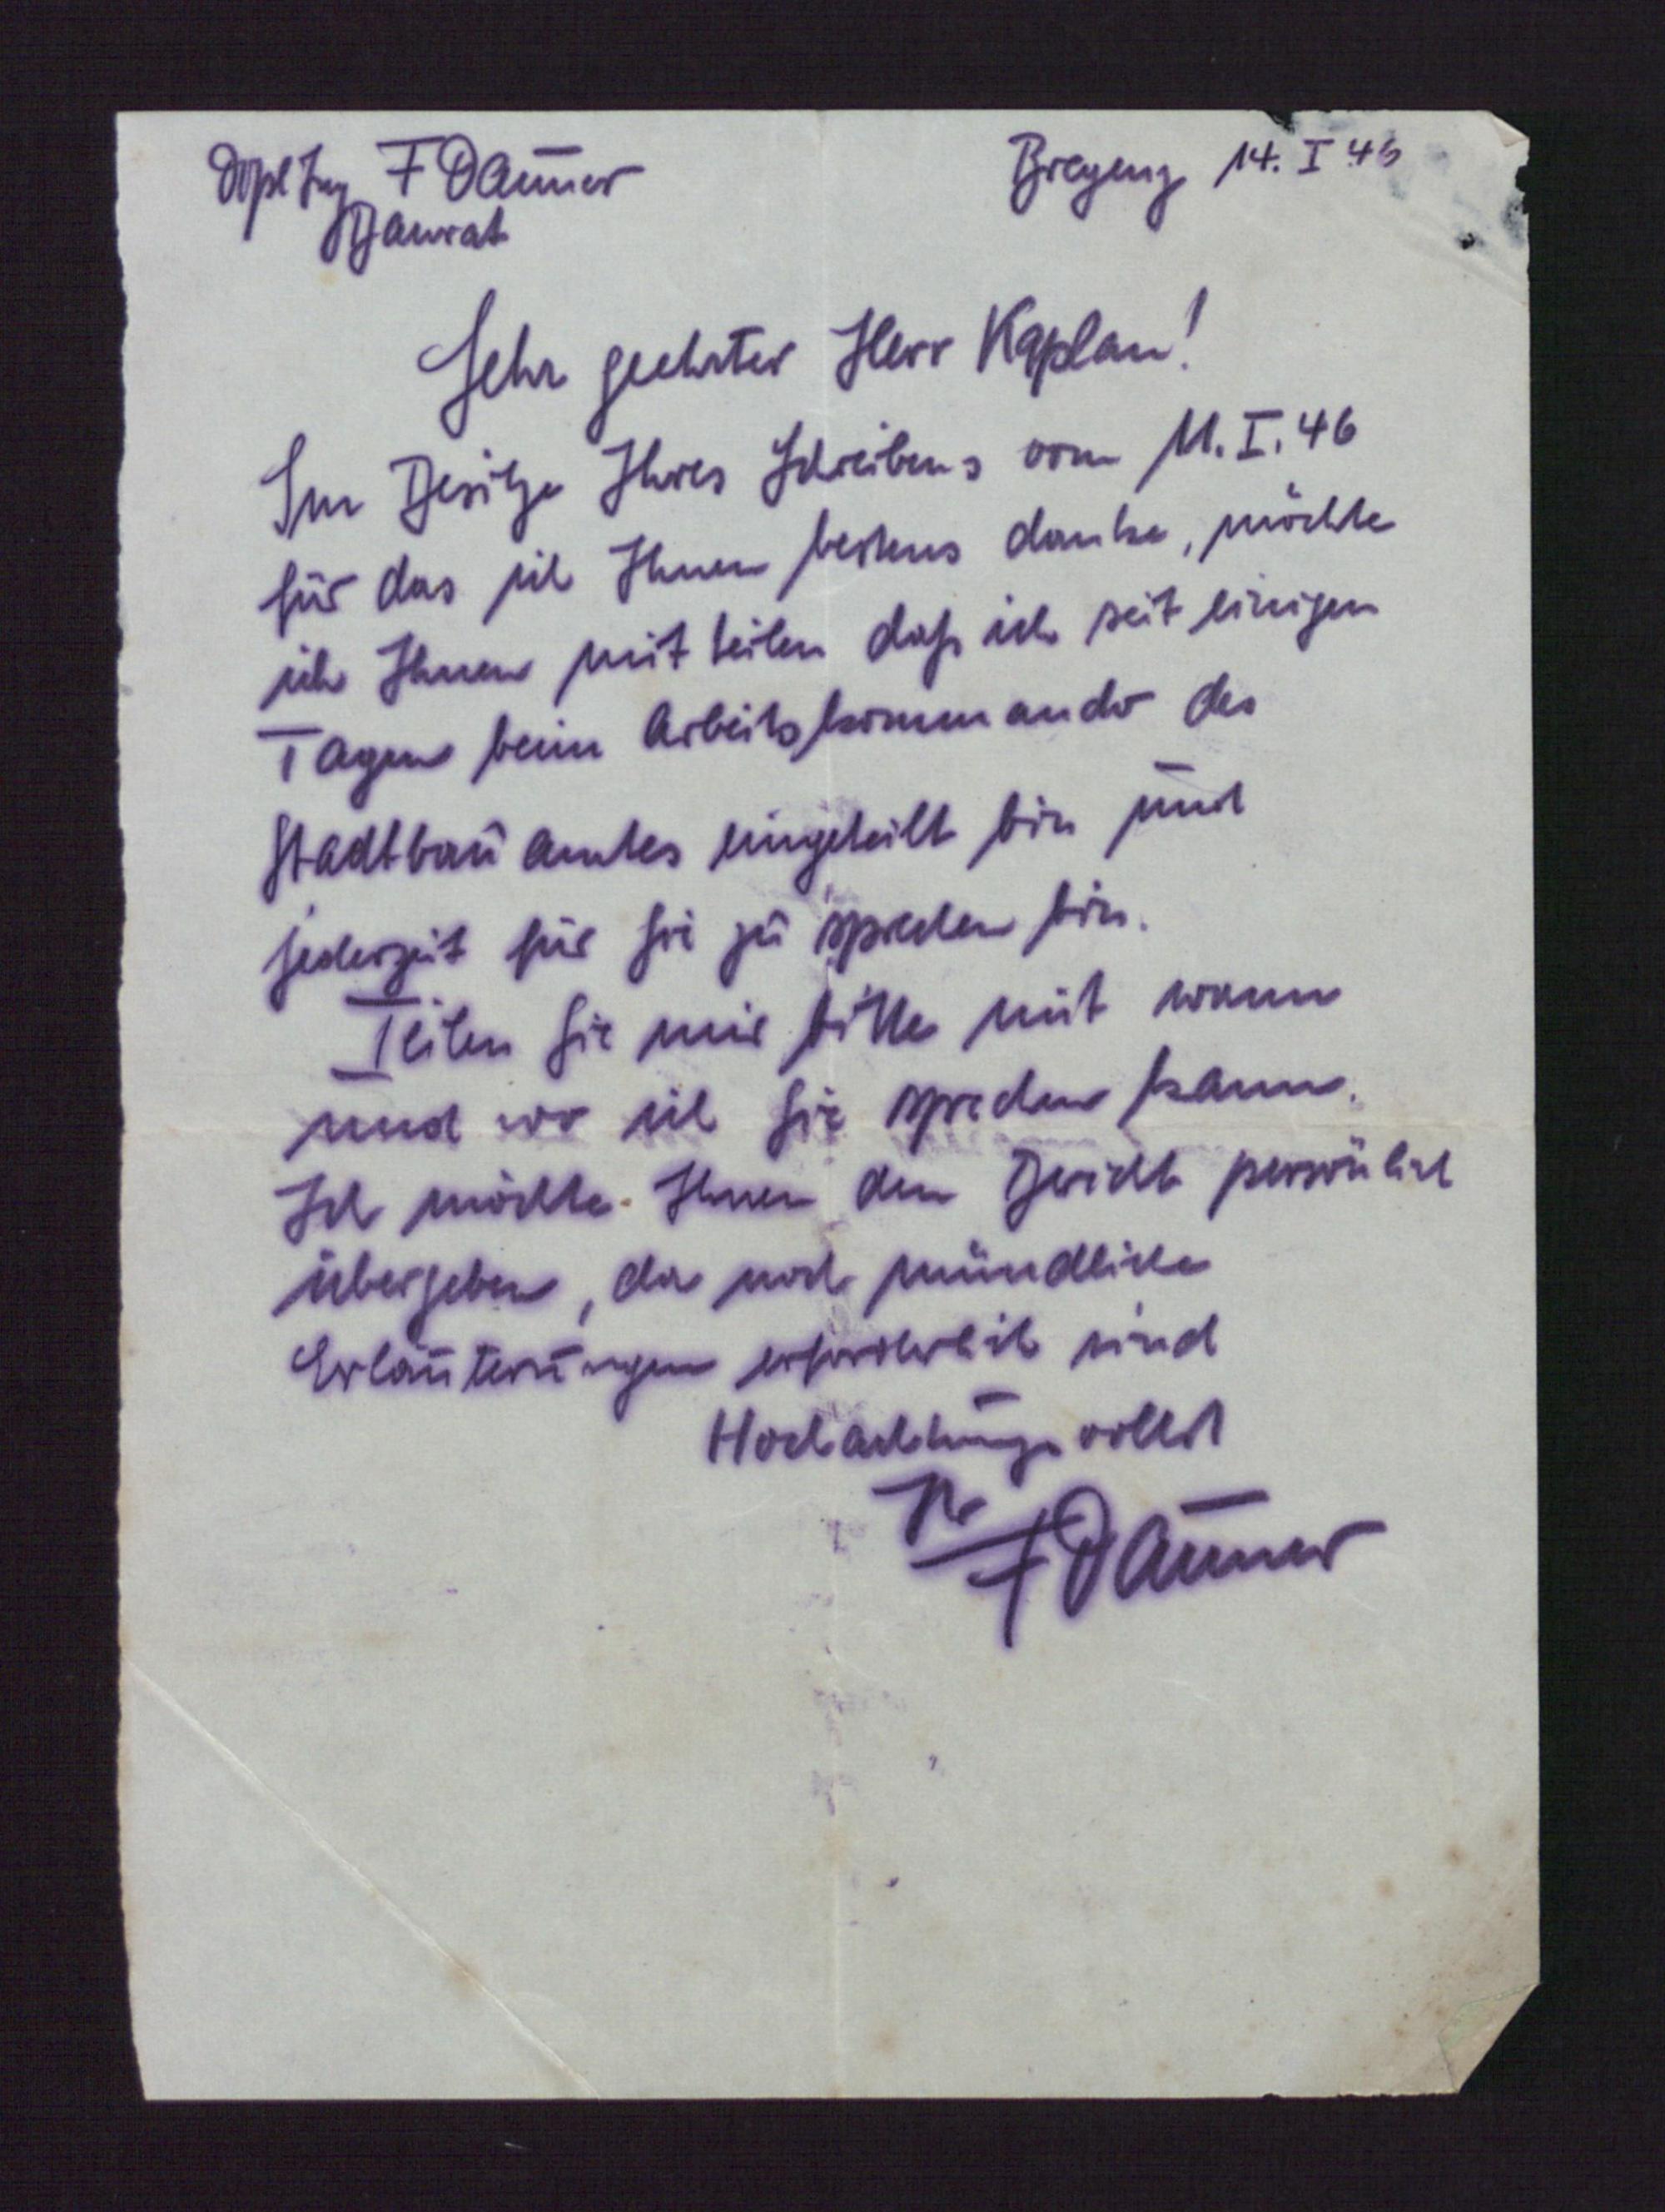 Dipl Ing F Daumer
Baurat
Bregenz 14. I 46
Sehr geehrter Herr Kaplan!
Im Besitze Ihres Schreibens vom 11. I. 46
für das ich Ihnen bestens danke, möchte
ich Ihnen mitteilen daß ich seit einigen
Tagen beim Arbeitskommando des
Stadtbauamtes eingeteilt bin und
jederzeit für Sie zu sprechen bin.
Teilen Sie mir bitte mit wann
und wo ich Sie sprechen kann.
Ich möchte Ihnen den Bericht persönlich
übergeben, da noch mündliche
Erläuterungen erforderlich sind
Hochachtungsvollst
Ihr
F Daumer